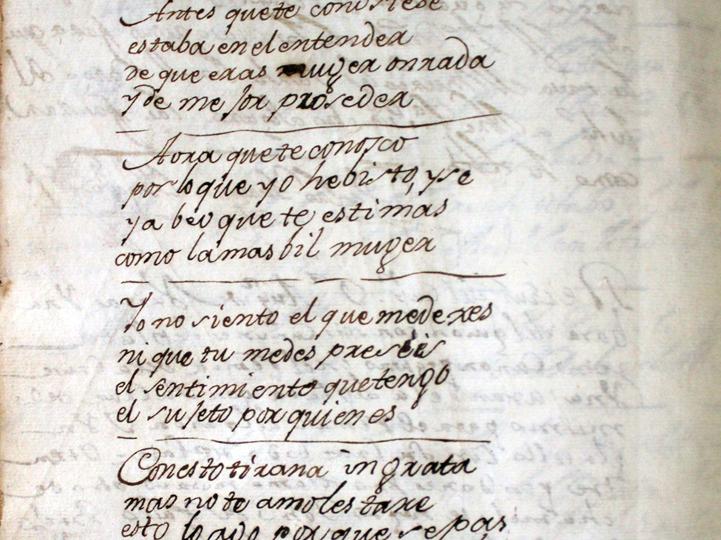 Antes quete conosiese
estaba en el entender
de que eras muger onrrada
y de mejor proseder
Aora quete conosco
por lo que yo he bisto, y se
ya beo que te estimas
como la mas bil muger
Yo no siento el que medexes
ni que tu medes presies
el sentimiento quetengo
el sujeto por quien es
Conesto tirana ingrata
mas no te amolestare
esto lo ago por que sepas